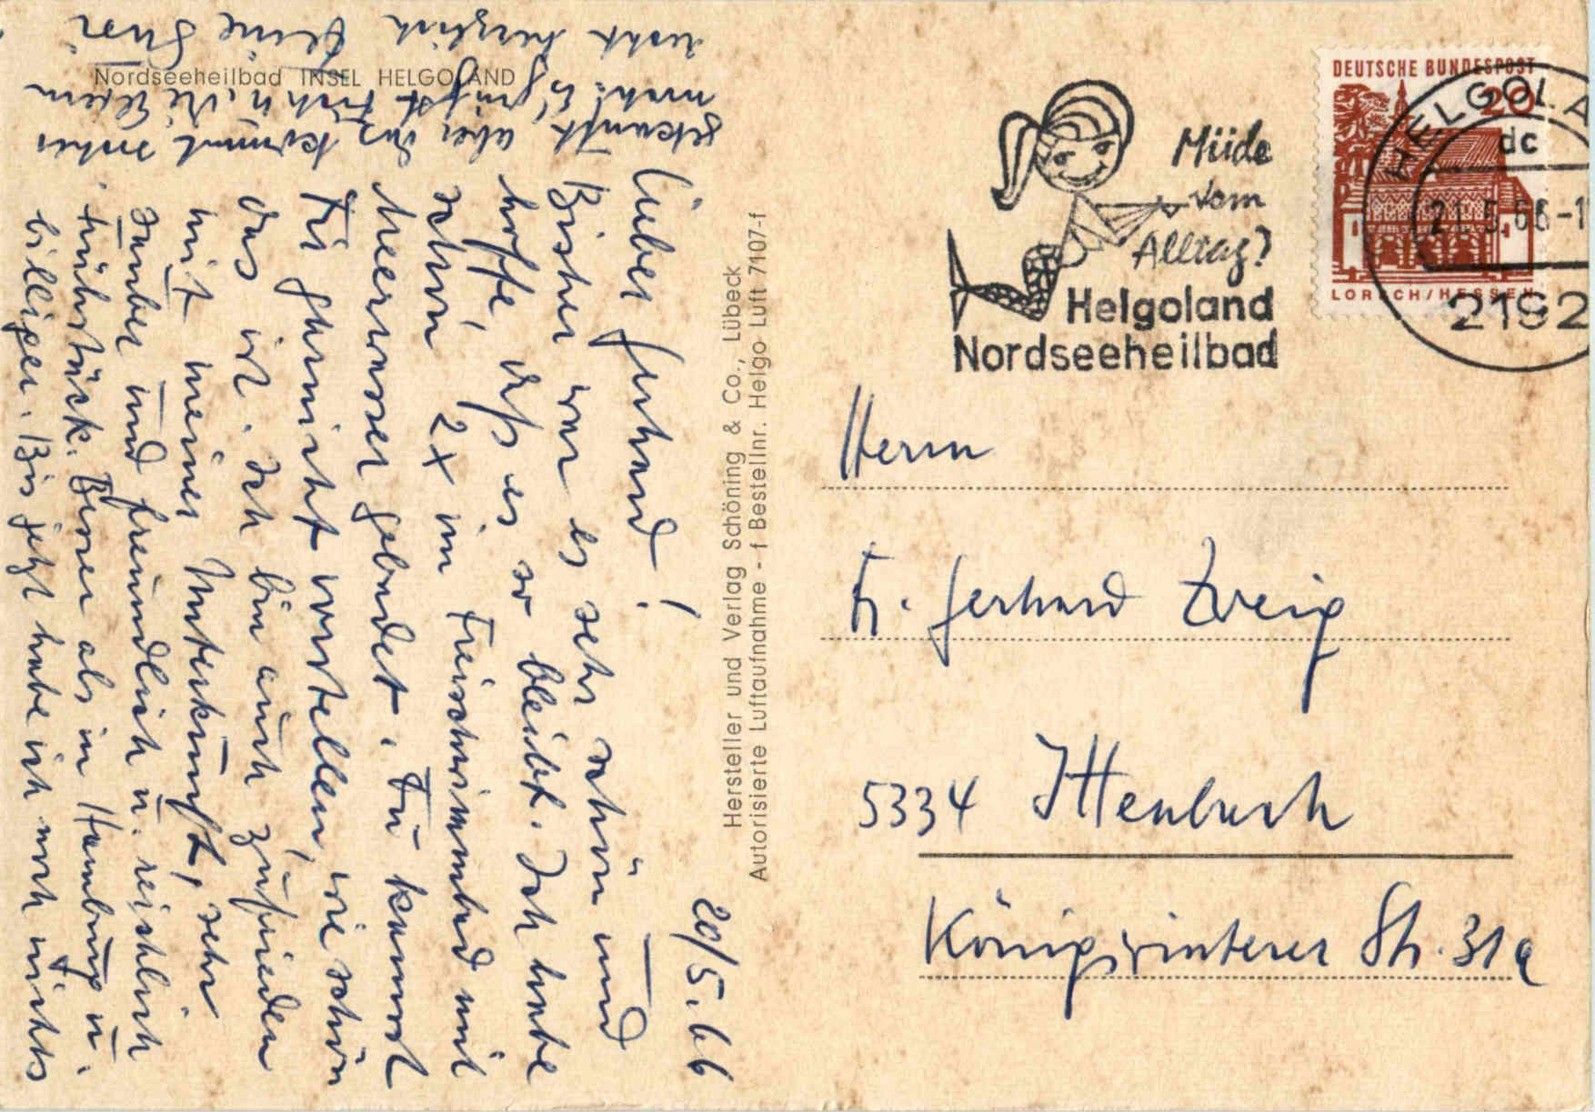 Nordseeheilbad INSEL HELGOLAND
20/5.66
Lieber Gerhard!
Bisher war es sehr schön und
hoffe, daß es so bleibt. Ich habe
schon 2x im Freischwimmbad mit
Meerwasser gebadet. Du kannst
Dir garnicht vorstellen, wie schön
das ist. Ich bin auch zufrieden
mit meiner Unterkunft, sehr
sauber und freundlich u. reichlich
Frühstück. Besser als in Hamburg u.
billiger. Bis jetzt habe ich noch nichts
gekauft aber das kommt sicher
noch. Es grüßt Dich u. die Eltern
recht herzlich Deine
Hersteller und Verlag Schöning & Co., Lübeck
Autorisierte Luftaufnahme - f Bestellnr. Helgo Luft 7107-f
Müde
vom
Alltag?
Helgoland
Nordseeheilbad
DEUTSCHE BUNDESPOST
20
LORSCH/HESSEN
HELGOLA
dc
21.5.66-1
2192
Herrn
Fr. Gerhard Zweig
5334 Ittenbach
Königswinterer Str. 31a